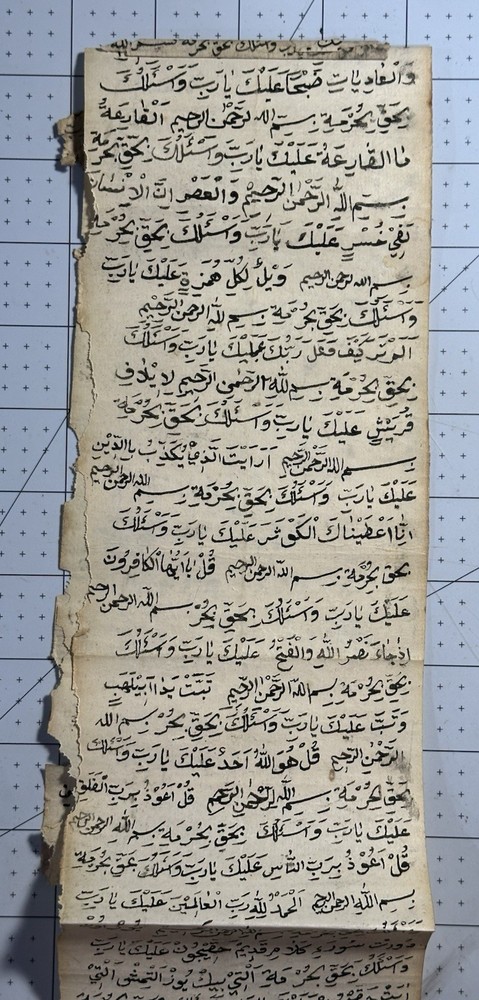 وَالْعَادِيَاتِ ضَبْحًا عَلَيْكَ يَارَبِّ وَاَسْئَلُكَ
بِحَقِّ بِحُرْمَةِ بِسْمِ اللهِ الرَّحْمٰنِ الرَّحِيمِ اَلْقَارِعَةُ
مَا الْقَارِعَةُ عَلَيْكَ يَارَبِّ وَاَسْئَلُكَ بِحَقِّ بِحُرْمَةِ
بِسْمِ اللهِ الرَّحْمٰنِ الرَّحِيمِ وَالْعَصْرِ اِنَّ الْاِنْسَانَ
لَفِي خُسْرٍ عَلَيْكَ يَارَبِّ وَاَسْئَلُكَ بِحَقِّ بِحُرْمَةِ
بِسْمِ اللهِ الرَّحْمٰنِ الرَّحِيمِ وَيْلٌ لِكُلِّ هُمَزَةٍ عَلَيْكَ يَارَبِّ
وَاَسْئَلُكَ بِحَقِّ بِحُرْمَةِ بِسْمِ اللهِ الرَّحْمٰنِ الرَّحِيمِ
اَلَمْ تَرَ كَيْفَ فَعَلَ رَبُّكَ عَلَيْكَ يَارَبِّ وَاَسْئَلُكَ
بِحَقِّ بِحُرْمَةِ بِسْمِ اللهِ الرَّحْمٰنِ الرَّحِيمِ لِايلَافِ
قُرَيْشٍ عَلَيْكَ يَارَبِّ وَاَسْئَلُكَ بِحَقِّ بِحُرْمَةِ
بِسْمِ اللهِ الرَّحْمٰنِ الرَّحِيمِ اَرَاَيْتَ الَّذِي يُكَذِّبُ بِالدِّينِ
عَلَيْكَ يَارَبِّ وَاَسْئَلُكَ بِحَقِّ بِحُرْمَةِ بِسْمِ اللهِ الرَّحْمٰنِ الرَّحِيمِ
اِنَّا اَعْطَيْنَاكَ الْكَوْثَرَ عَلَيْكَ يَارَبِّ وَاَسْئَلُكَ
بِحَقِّ بِحُرْمَةِ بِسْمِ اللهِ الرَّحْمٰنِ الرَّحِيمِ قُلْ يَا اَيُّهَا الْكَافِرُونَ
عَلَيْكَ يَارَبِّ وَاَسْئَلُكَ بِحَقِّ بِحُرْ بِسْمِ اللهِ الرَّحْمٰنِ الرَّحِيمِ
اِذَا جَاءَ نَصْرُ اللهِ وَالْفَتْحُ عَلَيْكَ يَارَبِّ وَاَسْئَلُكَ
بِحَقِّ بِحُرْمَةِ بِسْمِ اللهِ الرَّحْمٰنِ الرَّحِيمِ تَبَّتْ يَدَا اَبِي لَهَبٍ
وَتَبَّ عَلَيْكَ يَارَبِّ وَاَسْئَلُكَ بِحَقِّ بِحُرْ بِسْمِ اللهِ
الرَّحْمٰنِ الرَّحِيمِ قُلْ هُوَ اللهُ اَحَدٌ عَلَيْكَ يَارَبِّ وَاَسْئَلُكَ
بِحَقِّ بِحُرْمَةِ بِسْمِ اللهِ الرَّحْمٰنِ الرَّحِيمِ قُلْ اَعُوذُ بِرَبِّ الْفَلَقِ
عَلَيْكَ يَارَبِّ وَاَسْئَلُكَ بِحَقِّ بِحُرْمَةِ بِسْمِ اللهِ الرَّحْمٰنِ الرَّحِيمِ
قُلْ اَعُوذُ بِرَبِّ النَّاسِ عَلَيْكَ يَارَبِّ وَاَسْئَلُكَ بِحَقِّ بِحُرْمَةِ
بِسْمِ اللهِ الرَّحْمٰنِ الرَّحِيمِ اَلْحَمْدُ لِلّٰهِ رَبِّ الْعَالَمِينَ عَلَيْكَ يَارَبِّ
كلام قديم عليك يارب
وَاَسْئَلُكَ بِحَقِّ